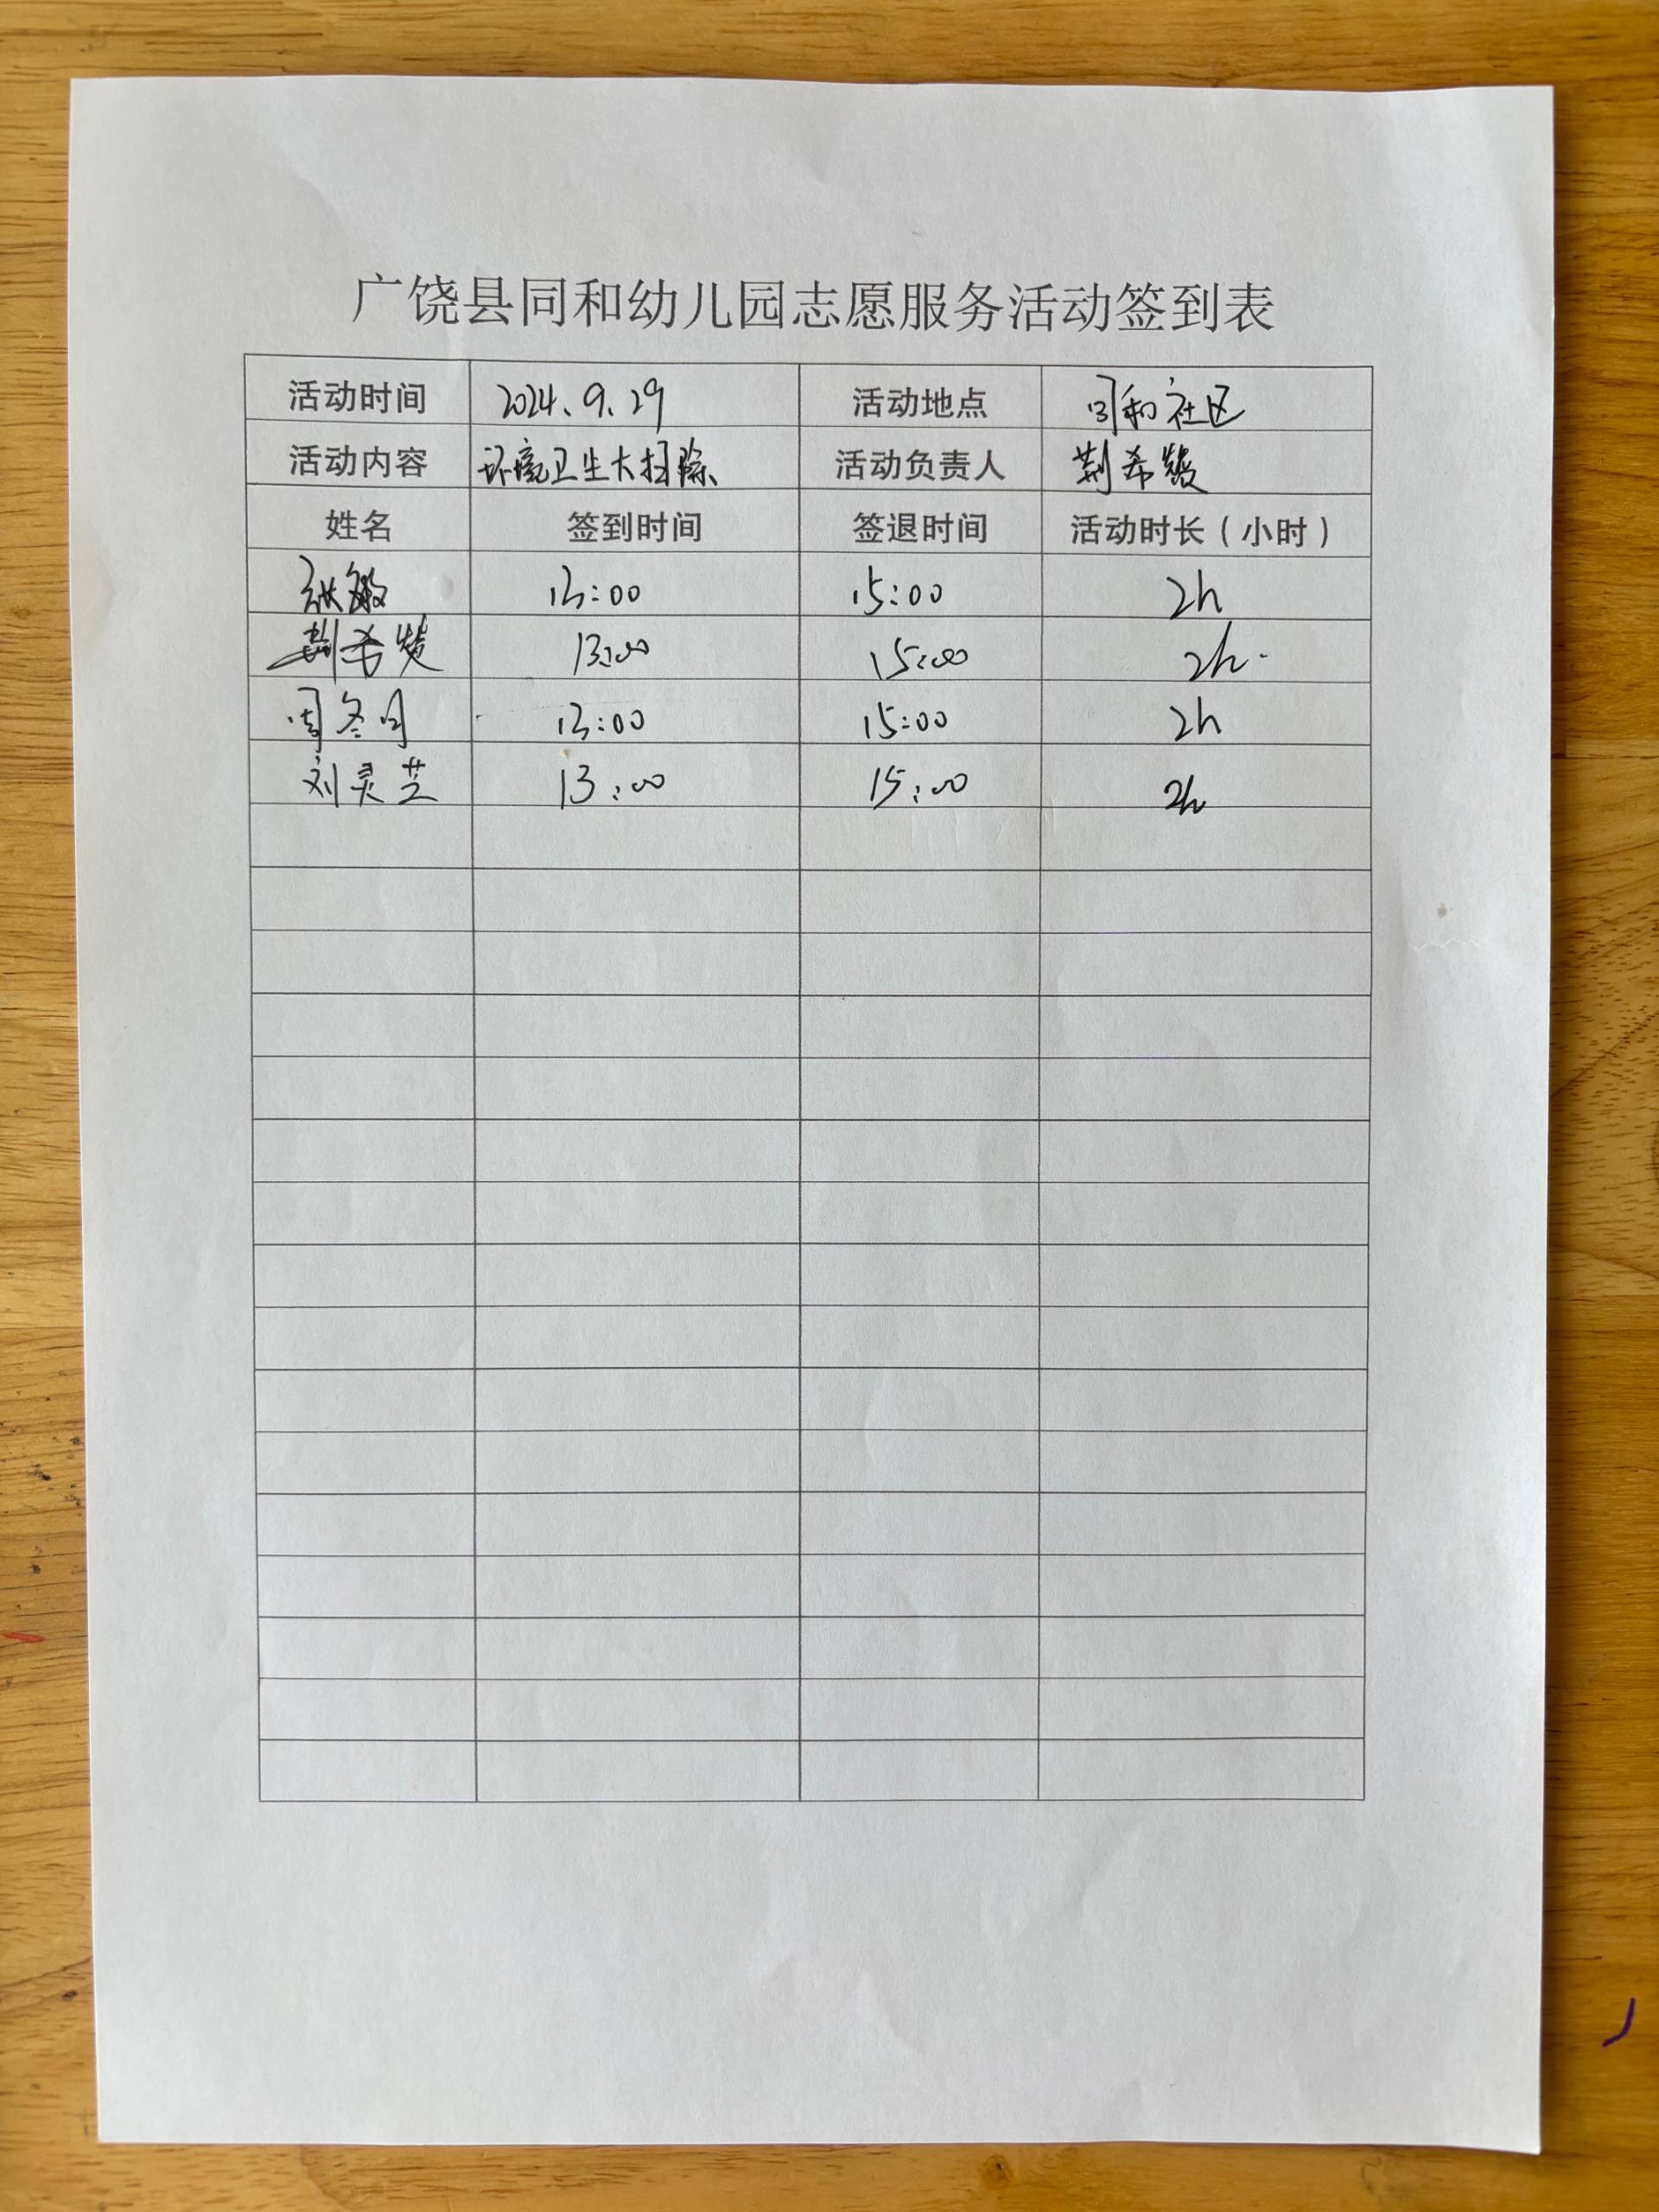 广饶县同和幼儿园志愿服务活动签到表
活动时间 2024.9.29 活动地点 同和社区
活动内容 环境卫生大扫除 活动负责人 荆希
姓名 签到时间 签退时间 活动时长（小时）
张敏 13:00 15:00 2h
荆希 13:00 15:00 2h.
周冬月 13:00 15:00 2h
刘灵芝 13:00 15:00 2h